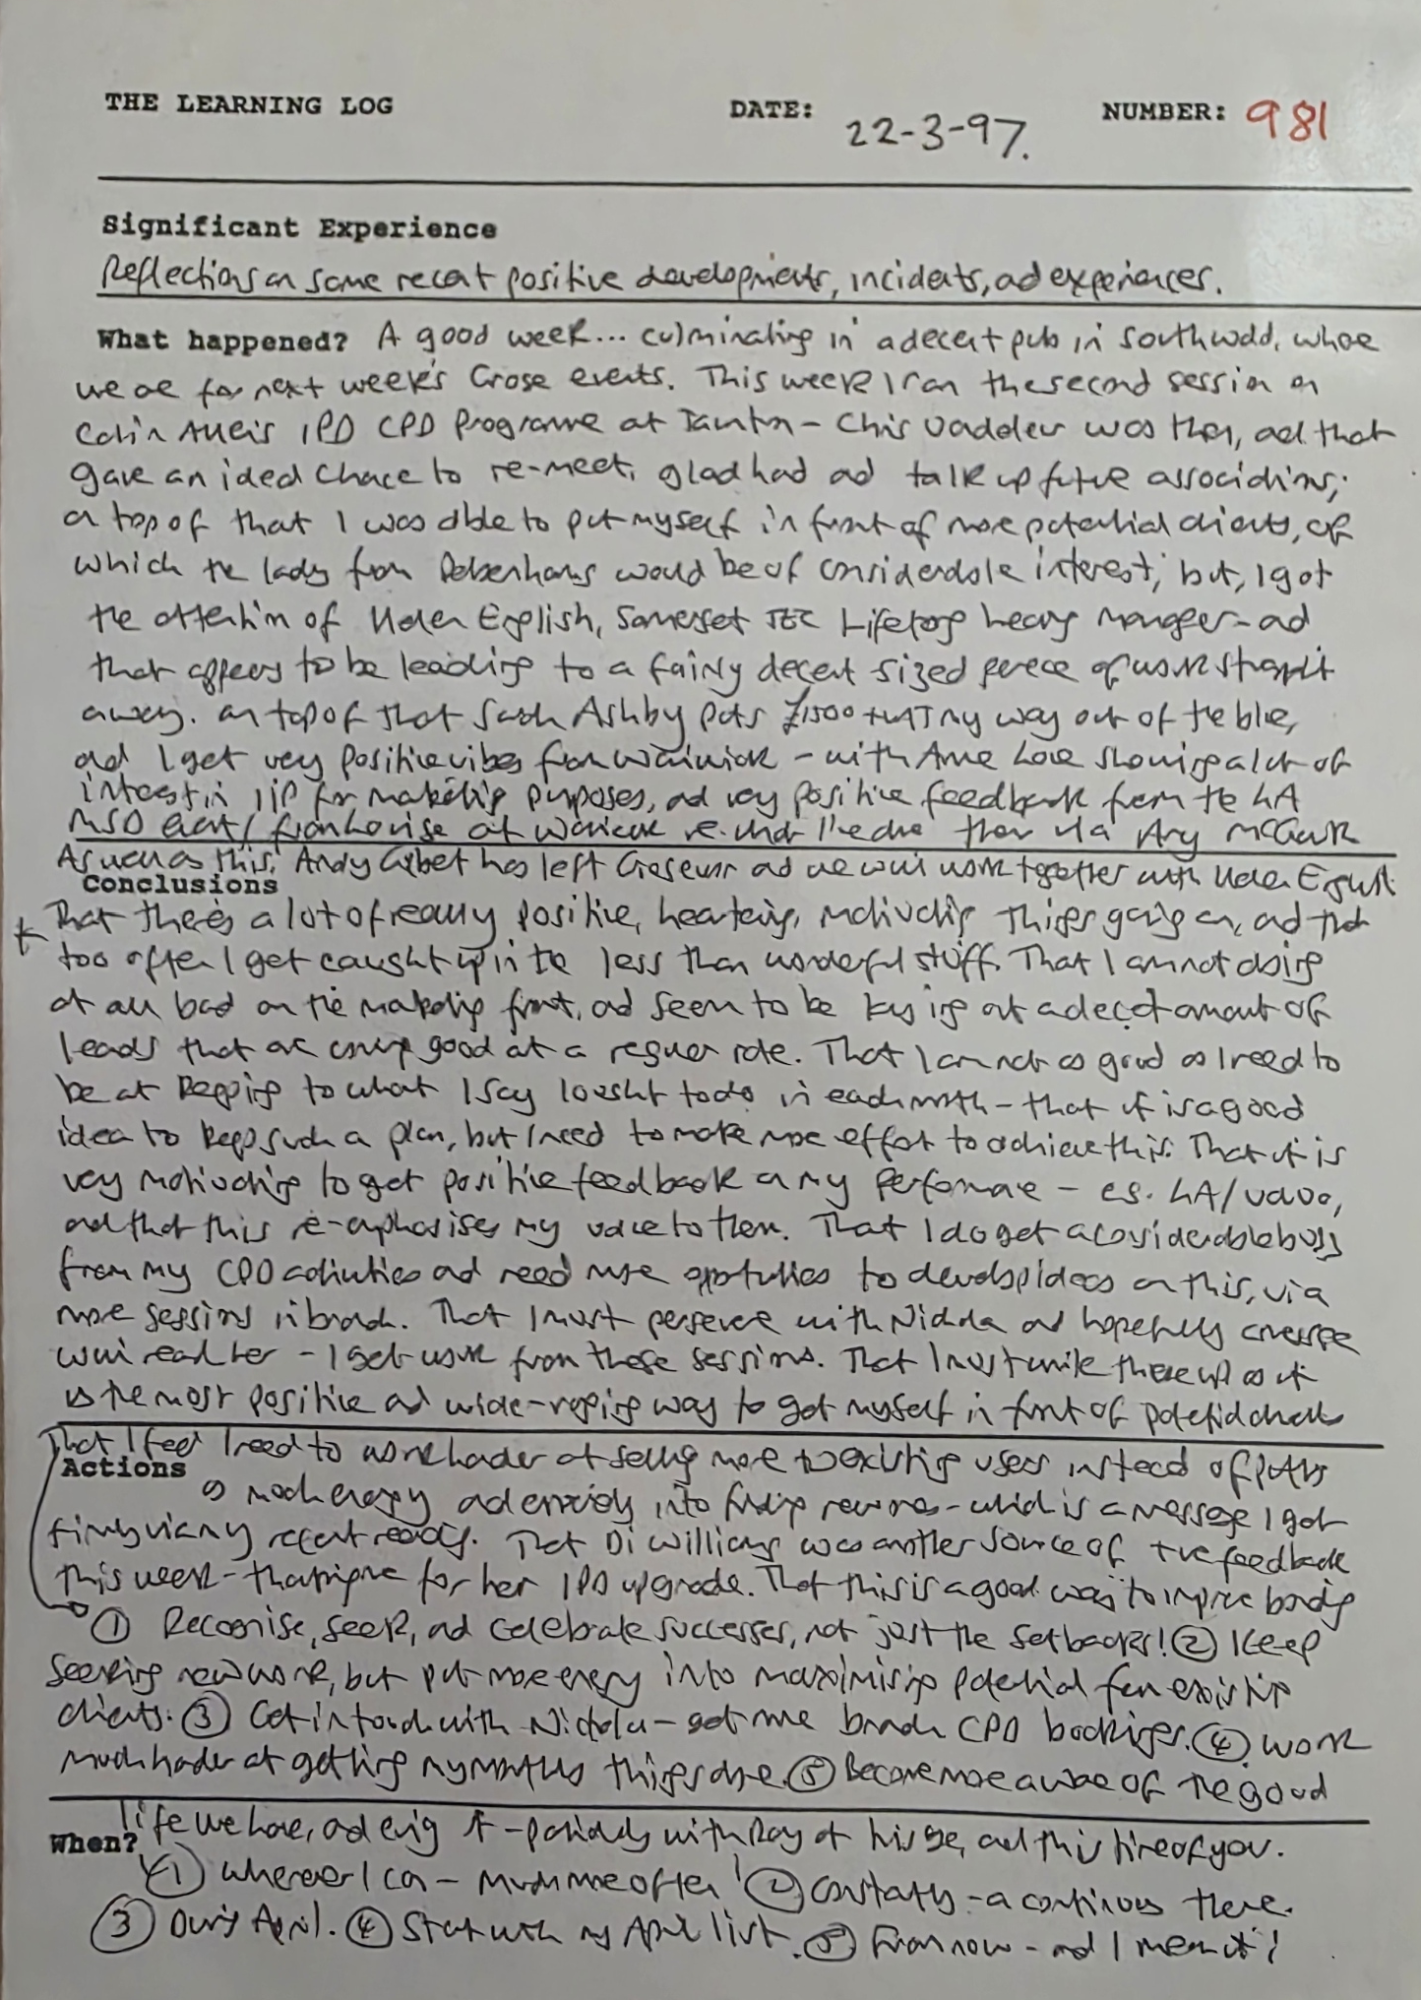 THE LEARNING LOG DATE: 22-3-97. NUMBER: 981
Significant Experience
Reflections on some recent positive developments, incidents, and experiences.
What happened? A good week... culminating in a decent pub in Southwold, where
we are for next week's Crose events. This week I ran the second session on
Colin Allen's IPD CPD Programme at Taunton - Chris was there, and that
gave an ideal chance to re-meet, glad hand and talk up future associations;
on top of that I was able to put myself in front of more potential clients, of
which the lady from Debenhams would be of considerable interest, but, I got
the attention of Helen English, Somerset TEC Lifelong Learning Manager - and
that appears to be leading to a fairly decent sized piece of work straight
away. On top of that Sarah Ashby puts £1500 + VAT my way out of the blue,
and I get very positive vibes from Warwick - with Anne Love showing a lot of
interest in IIP for marketing purposes, and very positive feedback from the LA
MSO event / from Louise at Warwick re. what I've done there via Amy McGurk
As well as this, Andy Gilbert has left and we will work together with Helen English.
Conclusions
That there's a lot of really positive, heartening, motivating things going on, and that
too often I get caught up in the less than wonderful stuff. That I am not doing
at all bad on the marketing front, and seem to be at a decent amount of
leads that are coming good at a regular rate. That I am not as good as I need to
be at keeping to what I say I ought to do in each month - that it is a good
idea to keep such a plan, but I need to make more effort to achieve this. That it is
very motivating to get positive feedback on my performance - e.g. LA/
and that this re-emphasises my value to them. That I do get a considerable buzz
from my CPD activities and need more opportunities to develop ideas on this, via
more sessions in branch. That I must persevere with Nichola and hopefully
will read her - I get work from these sessions. That I must write these up as it
is the most positive and wide-ranging way to get myself in front of potential clients
That I feel I need to work harder at selling more to existing users instead of putting
Actions
so much energy and anxiety into finding new ones - which is a message I got
firmly via my recent reading. That Di Williams was another source of +ve feedback
this week - for her IPD upgrade. That this is a good way to improve
① Recognise, seek, and celebrate successes, not just the setbacks! ② Keep
seeking new work, but put more energy into maximising potential from existing
clients. ③ Get in touch with Nichola - get more branch CPD bookings. ④ Work
much harder at getting my months things done. ⑤ Become more aware of the good
life we have, and enjoy it - particularly with Roy at his age, and this time of year.
When?
① Wherever I can - much more often! ② Constantly - a continuous theme.
③ During April. ④ Start with my April list. ⑤ From now - and I mean it!